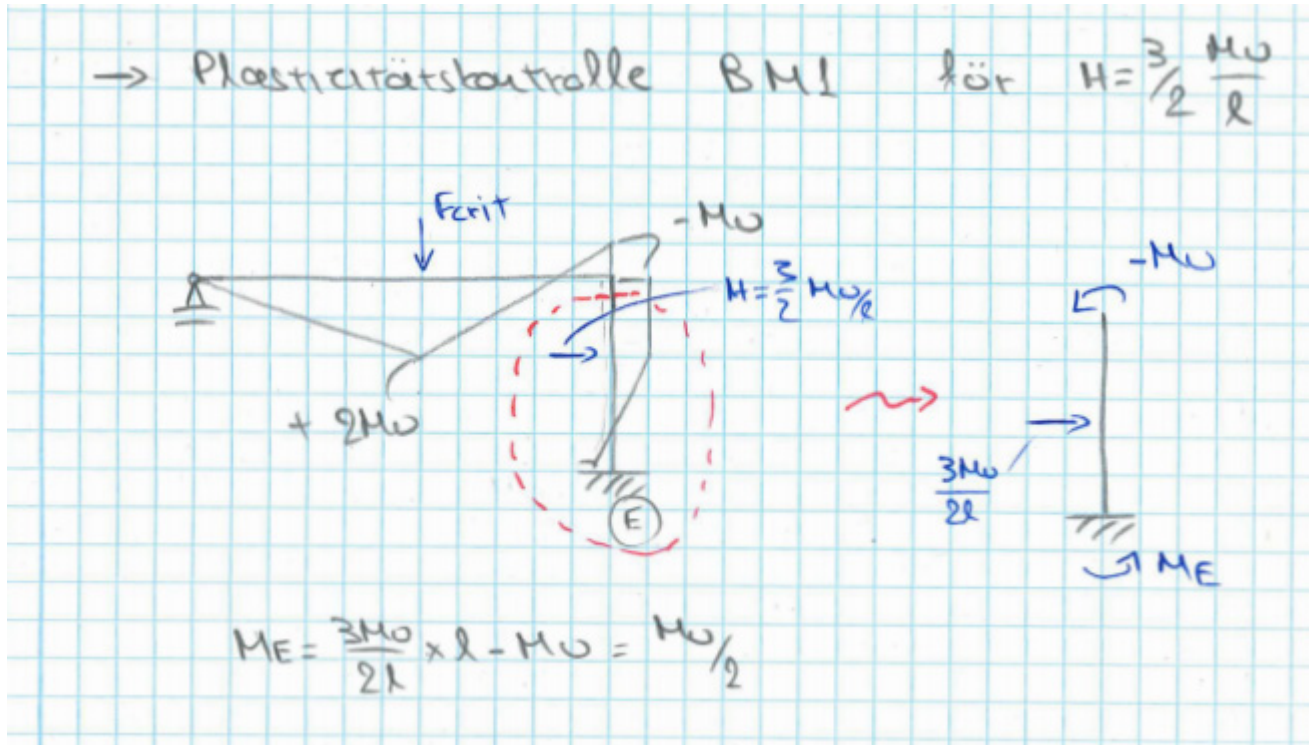 → Plasticitätskontrolle BM1 för H = 3/2 Mu/l
Fcrit
-Mu
H = 3/2 Mu/l
+ 2Mu
E
-Mu
3Mu/2l
ME
ME = 3Mu/2l × l - Mu = Mu/2